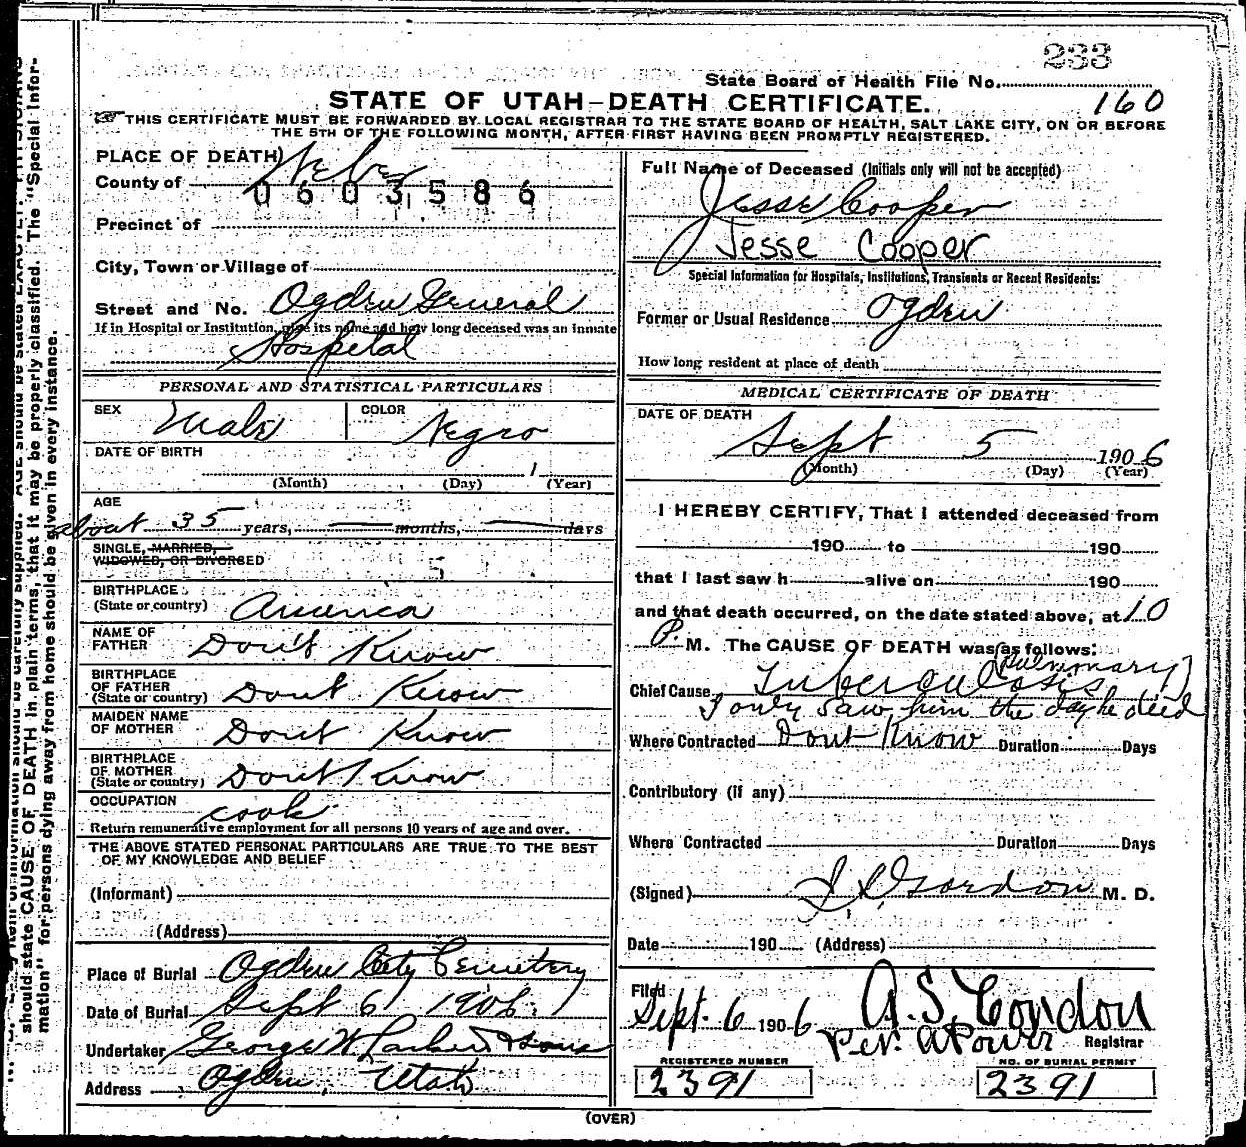 233
State Board of Health File No.
STATE OF UTAH—DEATH CERTIFICATE. 160
THIS CERTIFICATE MUST BE FORWARDED BY LOCAL REGISTRAR TO THE STATE BOARD OF HEALTH, SALT LAKE CITY, ON OR BEFORE
THE 5TH OF THE FOLLOWING MONTH, AFTER FIRST HAVING BEEN PROMPTLY REGISTERED.
PLACE OF DEATH
County of Weber
0603586
Precinct of
City, Town or Village of
Street and No. Ogden General
If in Hospital or Institution, give its name and how long deceased was an inmate
Hospital
PERSONAL AND STATISTICAL PARTICULARS
SEX Male COLOR Negro
DATE OF BIRTH
1
(Month) (Day) (Year)
AGE
about 35 years, months, days
SINGLE, MARRIED,
WIDOWED, OR DIVORCED
5
BIRTHPLACE
(State or country) America
NAME OF
FATHER Don't Know
BIRTHPLACE
OF FATHER
(State or country) Dont Know
MAIDEN NAME
OF MOTHER Dont Know
BIRTHPLACE
OF MOTHER
(State or country) Dont Know
OCCUPATION
cook
Return remunerative employment for all persons 10 years of age and over.
THE ABOVE STATED PERSONAL PARTICULARS ARE TRUE TO THE BEST
OF MY KNOWLEDGE AND BELIEF
(Informant)
(Address)
Place of Burial Ogden City Cemetery
Date of Burial Sept 6 1906.
Undertaker George W Larkin & Sons
Address Ogden, Utah
Full Name of Deceased (Initials only will not be accepted)
Jesse Cooper
Jesse Cooper
Special Information for Hospitals, Institutions, Transients or Recent Residents:
Former or Usual Residence Ogden
How long resident at place of death
MEDICAL CERTIFICATE OF DEATH
DATE OF DEATH
Sept 5 1906
(Month) (Day) (Year)
I HEREBY CERTIFY, That I attended deceased from
190 to 190
that I last saw h alive on 190
and that death occurred, on the date stated above, at 10
P. M. The CAUSE OF DEATH was as follows:
(Pulmonary)
Chief Cause Tuberculosis
I only saw him the day he died
Where Contracted Dont Know Duration Days
Contributory (if any)
Where Contracted Duration Days
(Signed) Gordon M. D.
Date 190 (Address)
Filed
Sept. 6 1906 A.S. Condon
Per. A Power Registrar
REGISTERED NUMBER NO. OF BURIAL PERMIT
2391 2391
(OVER)
should state CAUSE OF DEATH in plain terms, that it may be properly classified. The "Special Infor-
mation" for persons dying away from home should be given in every instance.